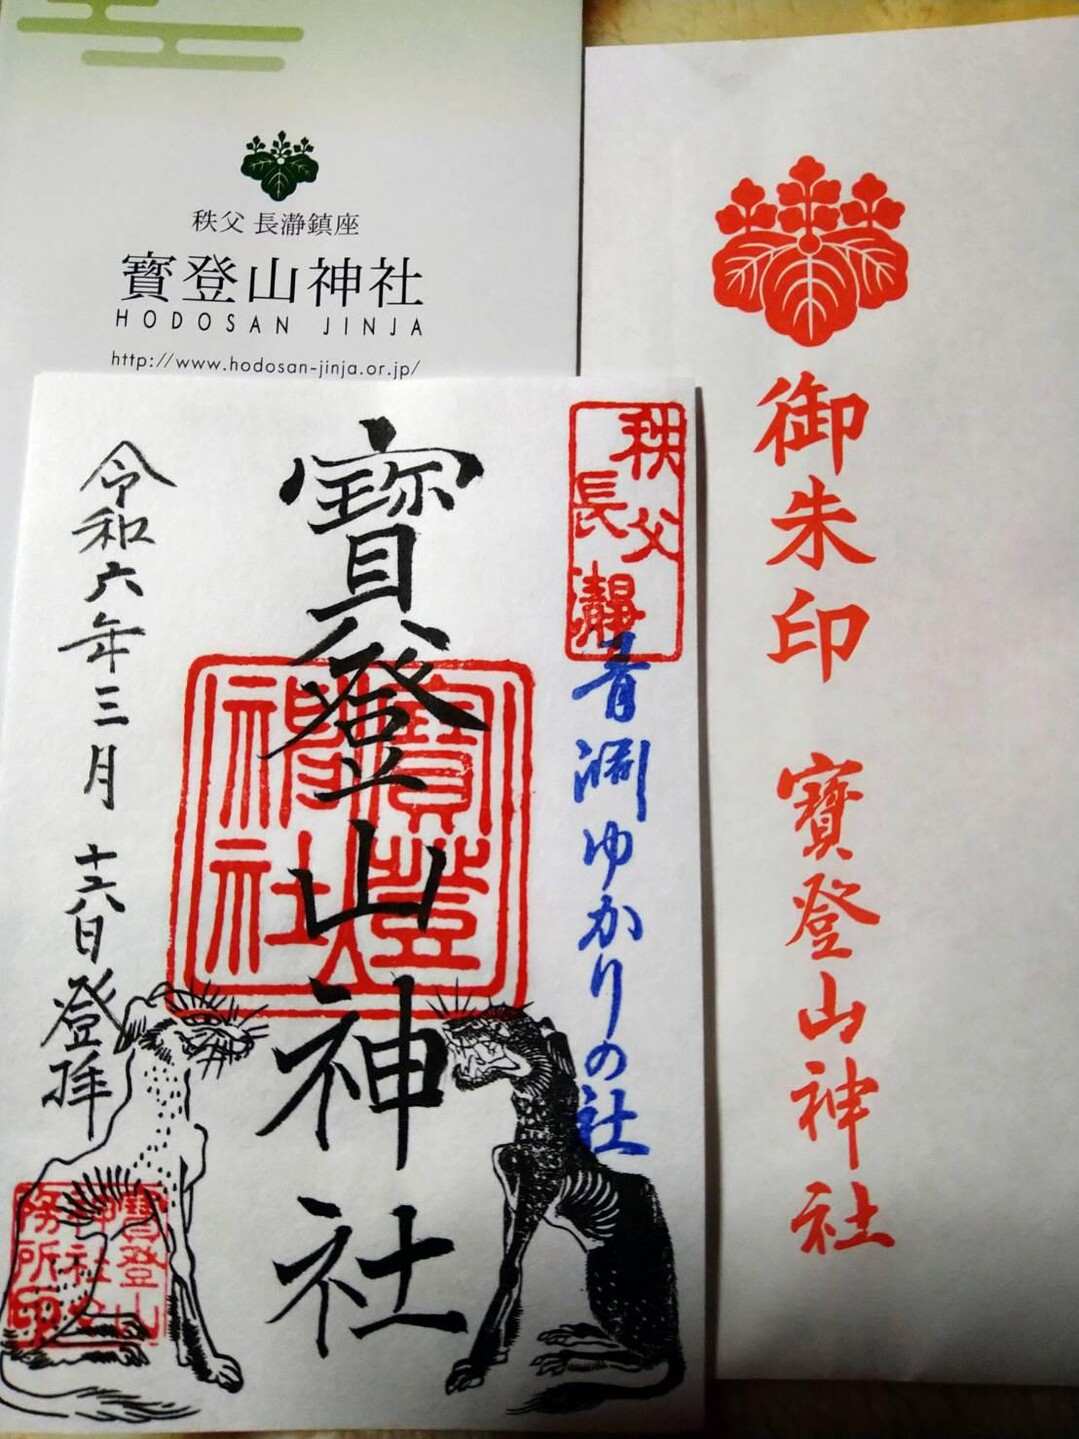 秩父 長瀞鎮座
寳登山神社
HODOSAN JINJA
http://www.hodosan-jinja.or.jp/
御朱印 寳登山神社
秩父
長瀞
青淵ゆかりの社
寳登山神社
寳登
神社
令和六年三月 十六日登拝
寳登山
神社社
務所印